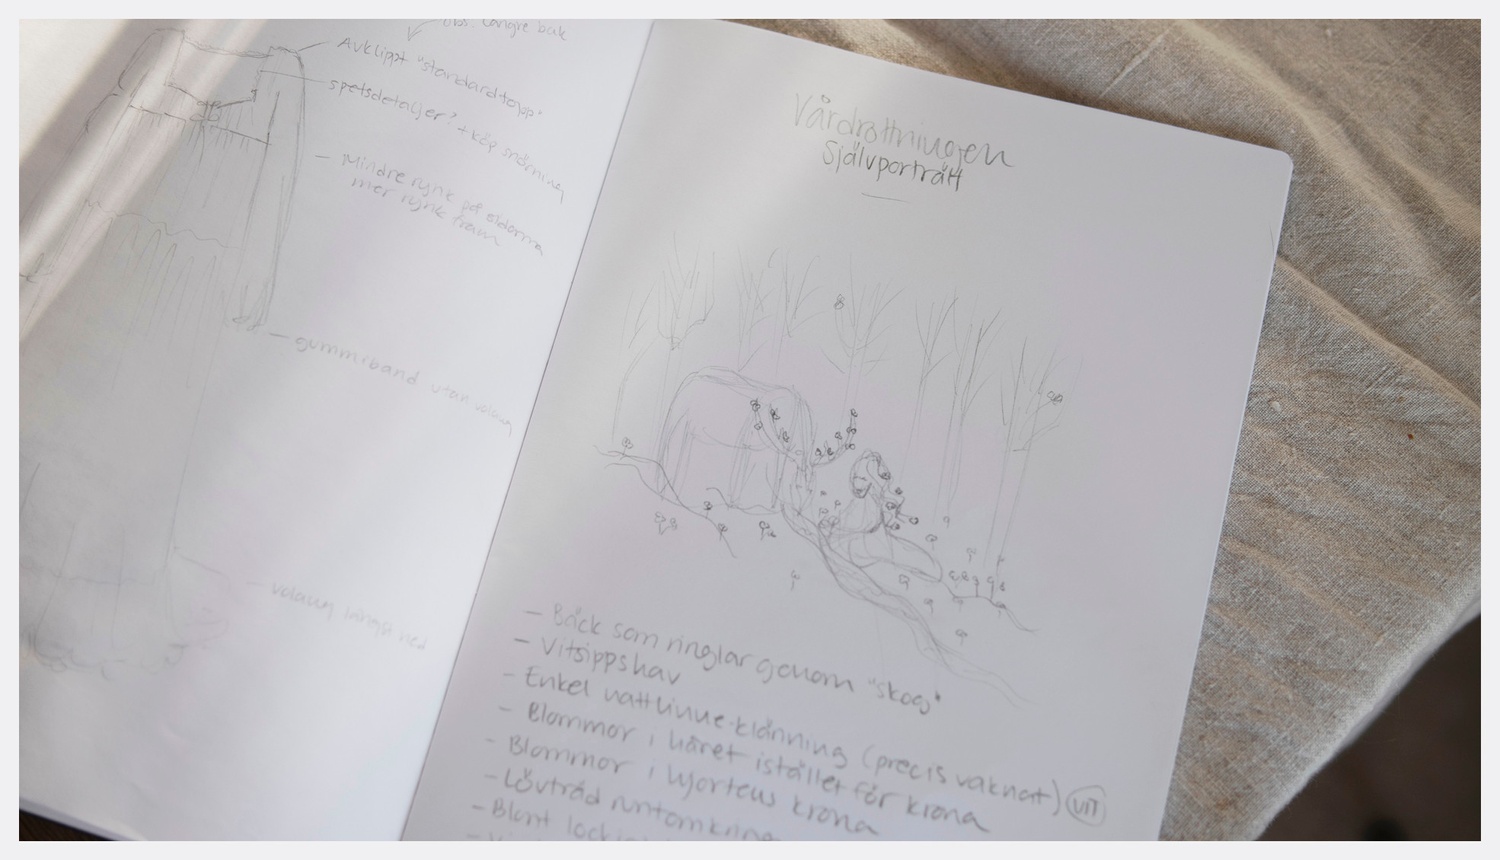 obs. längre bak
Avklippt "standardtopp"
spetsdetaljer? + köp snörning
– Mindre rynk på sidorna
mer rynk fram
– gummiband utan volang
– volang längst ned
Vårdrottningen
Självporträtt
– Bäck som ringlar genom "skog"
– Vitsippshav
– Enkel nattlinne-klänning (precis vaknat) VIT
– Blommor i håret istället för krona
– Blommor i hjortens krona
– Lövträd runtomkring
– Blont